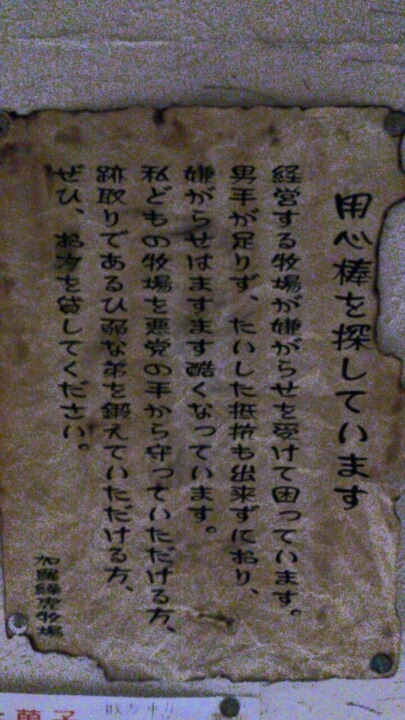 用心棒を探しています
経営する牧場が嫌がらせを受けて困っています。
男手が足りず、たいした抵抗も出来ずにおり、
嫌がらせはますます酷くなっています。
私どもの牧場を悪党の手から守っていただける方、
跡取りであるひ弱な弟を鍛えていただける方、
ぜひ、お力を貸してください。
牧場
菓子